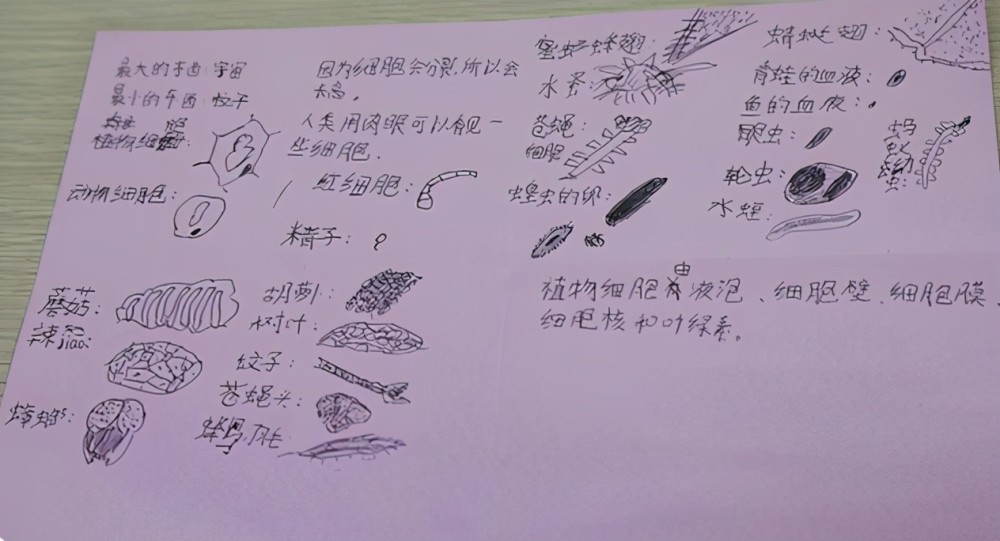 最大的东西:宇宙
最小的东西:粒子
植物细胞:
动物细胞:
因为细胞会分裂,所以会
长高。
人类用肉眼可以看见一
些细胞.
红细胞:
精子:
蘑菇:
辣jiao:
胡萝卜:
树叶:
蚊子:
苍蝇头:
蟑螂:
蜜蜂翅:
水蚤:
苍蝇:
细胞
蝗虫的卵:
蜻蜓翅:
青蛙的血液:
鱼的血液:
眼虫:
轮虫:
水蛭:
蚂
蚁
幼
虫:
植物细胞由液泡、细胞壁、细胞膜、
细胞核和叶绿素。